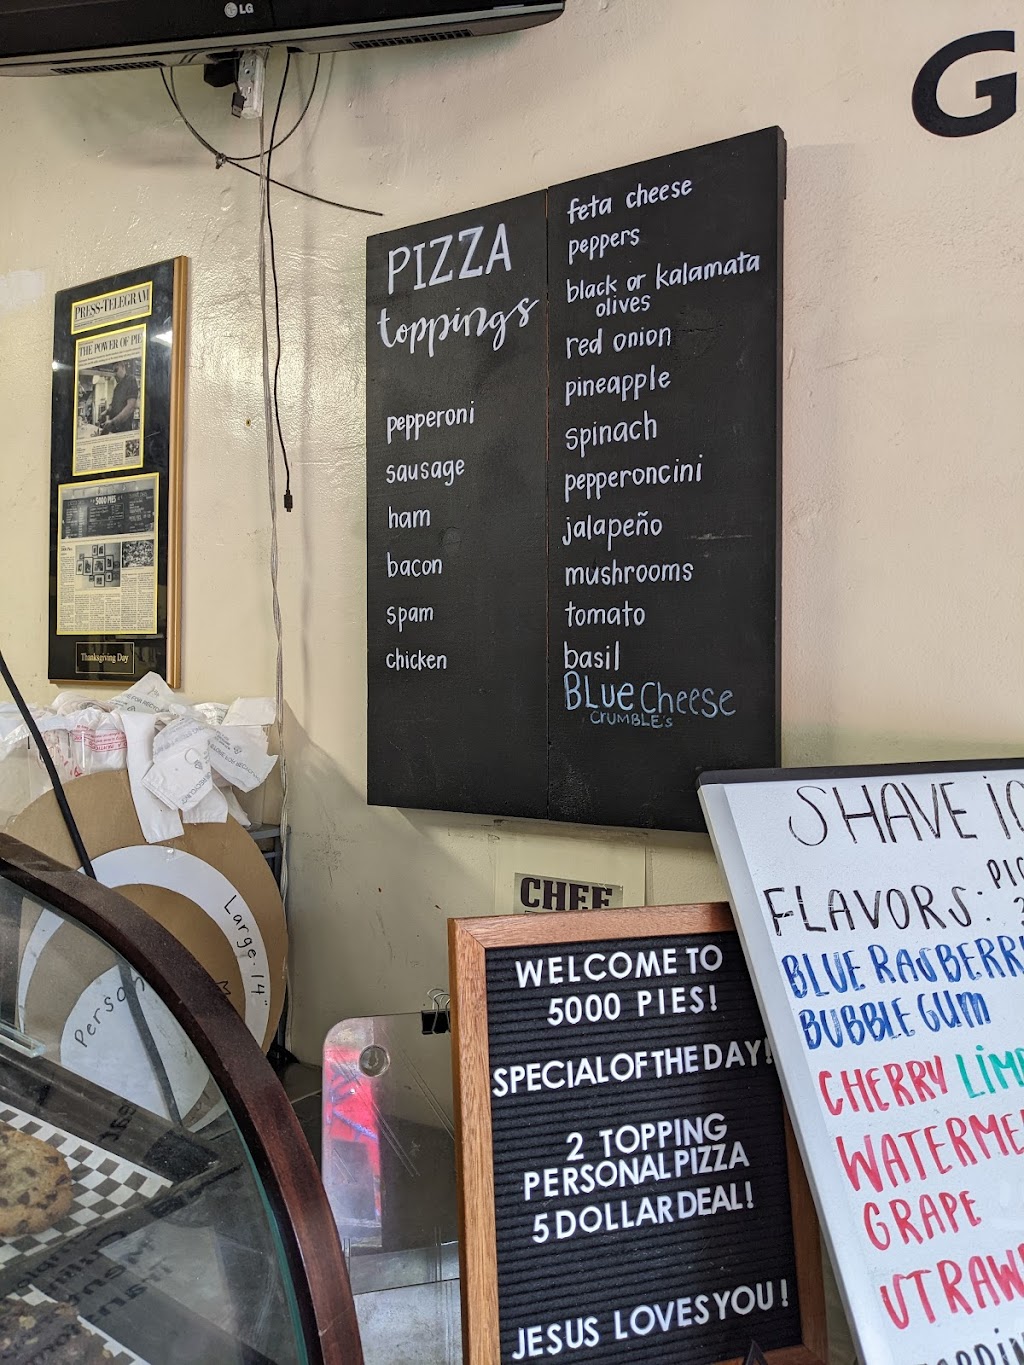 LG
G
PRESS-TELEGRAM
THE POWER OF PIE
5000 PIES
Thanksgiving Day
PIZZA
toppings
pepperoni
sausage
ham
bacon
spam
chicken
feta cheese
peppers
black or kalamata
olives
red onion
pineapple
spinach
pepperoncini
jalapeño
mushrooms
tomato
basil
BLue Cheese
CRUMBLE's
Large 14"
M
Person
CHEF
WELCOME TO
5000 PIES!
SPECIAL OF THE DAY!
2 TOPPING
PERSONAL PIZZA
5 DOLLAR DEAL!
JESUS LOVES YOU!
SHAVE
FLAVORS:
BLUE RASBERRI
BUBBLE GUM
CHERRY LIM
WATERME
GRAPE
STRAW